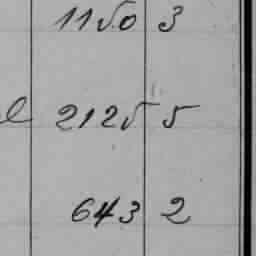 1150 3
2125 5
643 2